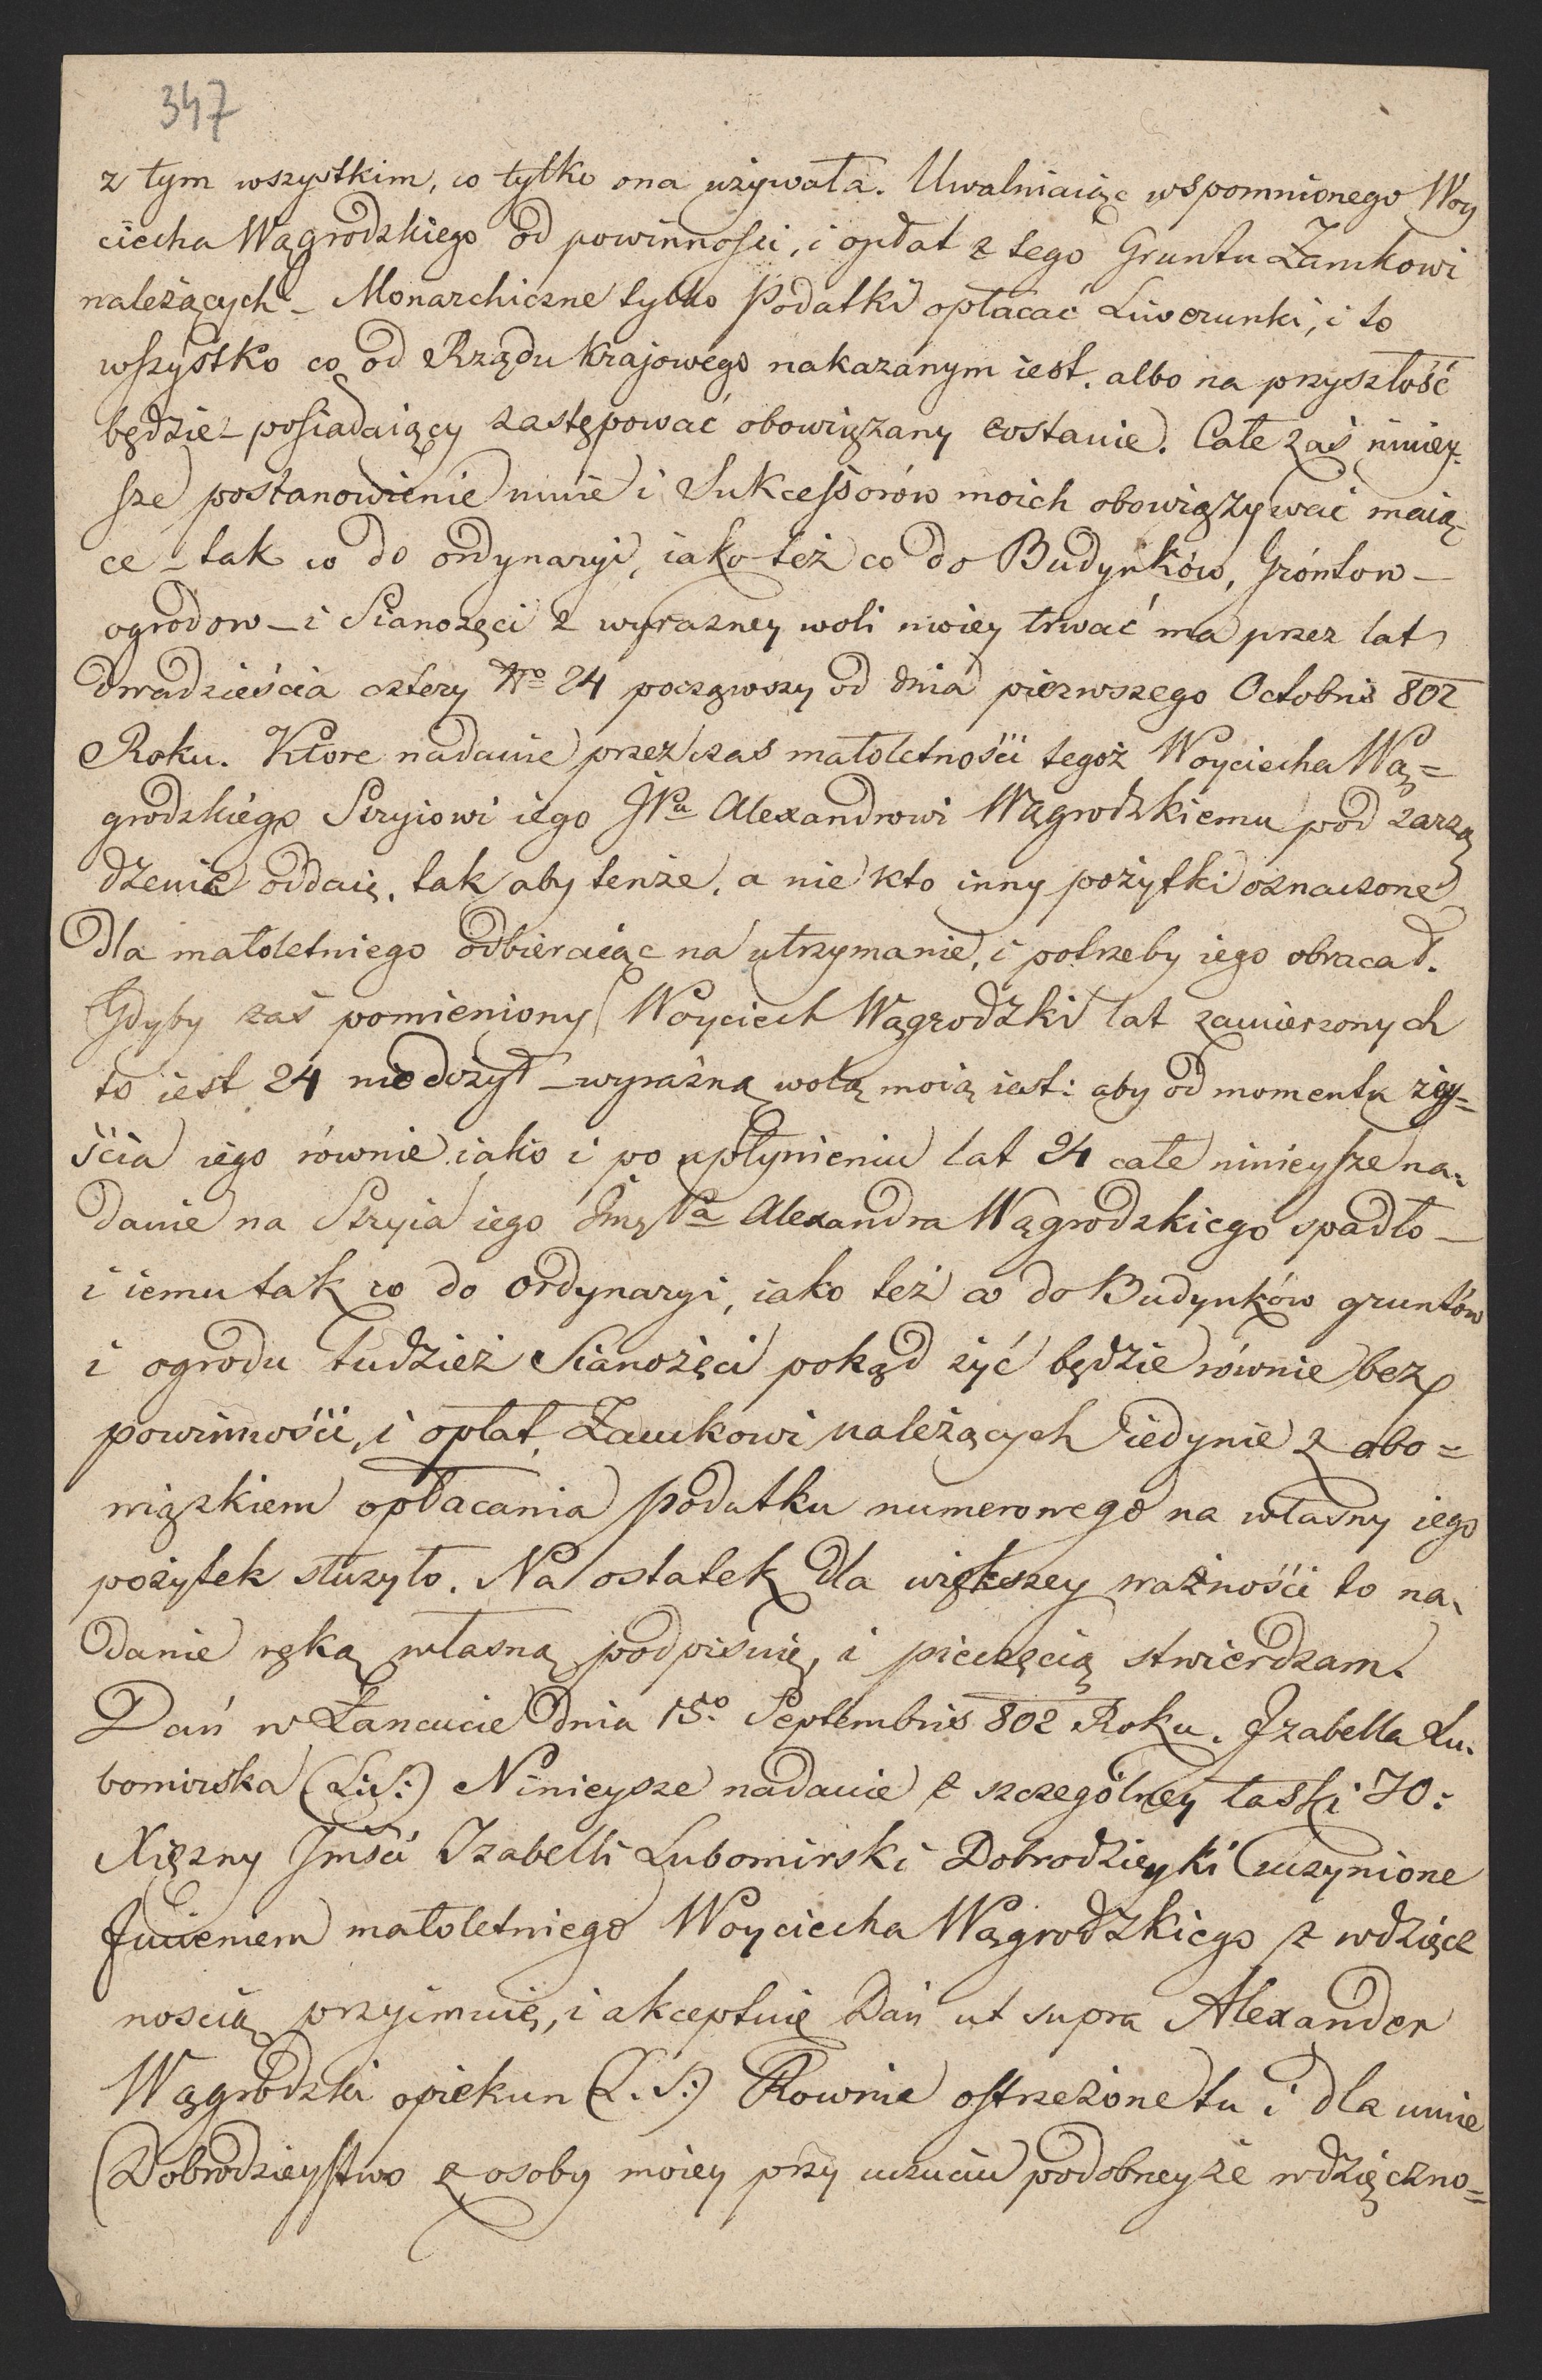 347
z tym wszystkim, co tylko ona używała. Uwalniaiąc wspomnionego Woy
ciecha Wągrodzkiego od powinności, i opłat z tego Gruntu Zamkowi
należących – Monarchiczne tylko Podatki opłacać Liwerunki, i to
wszystko co od Rządu Krajowego nakazanym iest. albo na przyszłość
będzie – posiadaiący zastępować obowiązany zostanie. Całe zaś niniey-
sze postanowienie mnie i Sukcessorów moich obowiązywać maią-
ce – tak co do ordynaryi, iako też co do Budynków, Gróntow –
ogrodow – i Sianożęci z wyrazney woli moiey trwać ma przez lat
dwadzieścia cztery No 24 począwszy od dnia pierwszego Octobris 802
Roku. Ktore nadanie przez czas małoletności tegoż Woyciecha Wą=
grodzkiego Stryiowi iego JPu Alexandrowi Wągrodzkiemu pod zarzą
dzenie oddaię. tak aby tenże. a nie kto inny pożytki oznaczone
dla małoletniego odbieraiąc na utrzymanie, i potrzeby iego obracał.
Gdyby zaś pomieniony Woyciech Wągrodzki lat zamierzonych
to iest 24 nie dożył – wyraźną wolą moią iest: aby od momentu zey=
ścia iego równie iako i po upłynieniu lat 24 całe ninieysze na-
danie na Stryia iego Jmę Pa Alexandra Wągrodzkiego spadło –
i iemu tak co do Ordynaryi, iako też co do Budynków gruntów
i ogrodu tudzież Sianożęci pokąd żyć będzie równie bez
powinności, i opłat Zamkowi należących iedynie z obo=
wiązkiem opłacania podatku numerowego na własny iego
pożytek służyło. Na ostatek dla większey ważności to na-
danie ręką własną podpisuię, i pieczęcią stwierdzam.
Dań w Łancucie dnia 15o Septembris 802 Roku. Izabella Lu-
bomirska (L:S:) Ninieysze nadanie z szczególney łaski JO:
Xiężny Jmści Izabelli Lubomirski Dobrodzieyki uczynione
Jmieniem małoletniego Woyciecha Wągrodzkiego z wdzięcz
nością przyimuię, i akceptuię Dań ut supra Alexander
Wągrodzki opiekun (L.S:) Rownie ostrzeżone tu i dla mnie
Dobrodzieystwo z osoby moiey przy uczuciu podobneyże wdzięczno=